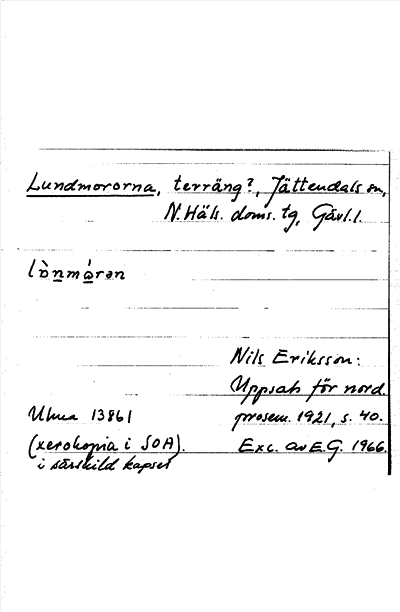 Lundmororna, terräng?, Jättendals sn,
N.Häls. doms. tg, Gävl.l.
lònmǻrən
Nils Eriksson:
Uppsats för nord.
prosem. 1921, s. 40.
Exc. av E.G. 1966.
Uluma 13861
(xerokopia i SOA).
i särskild kapsel